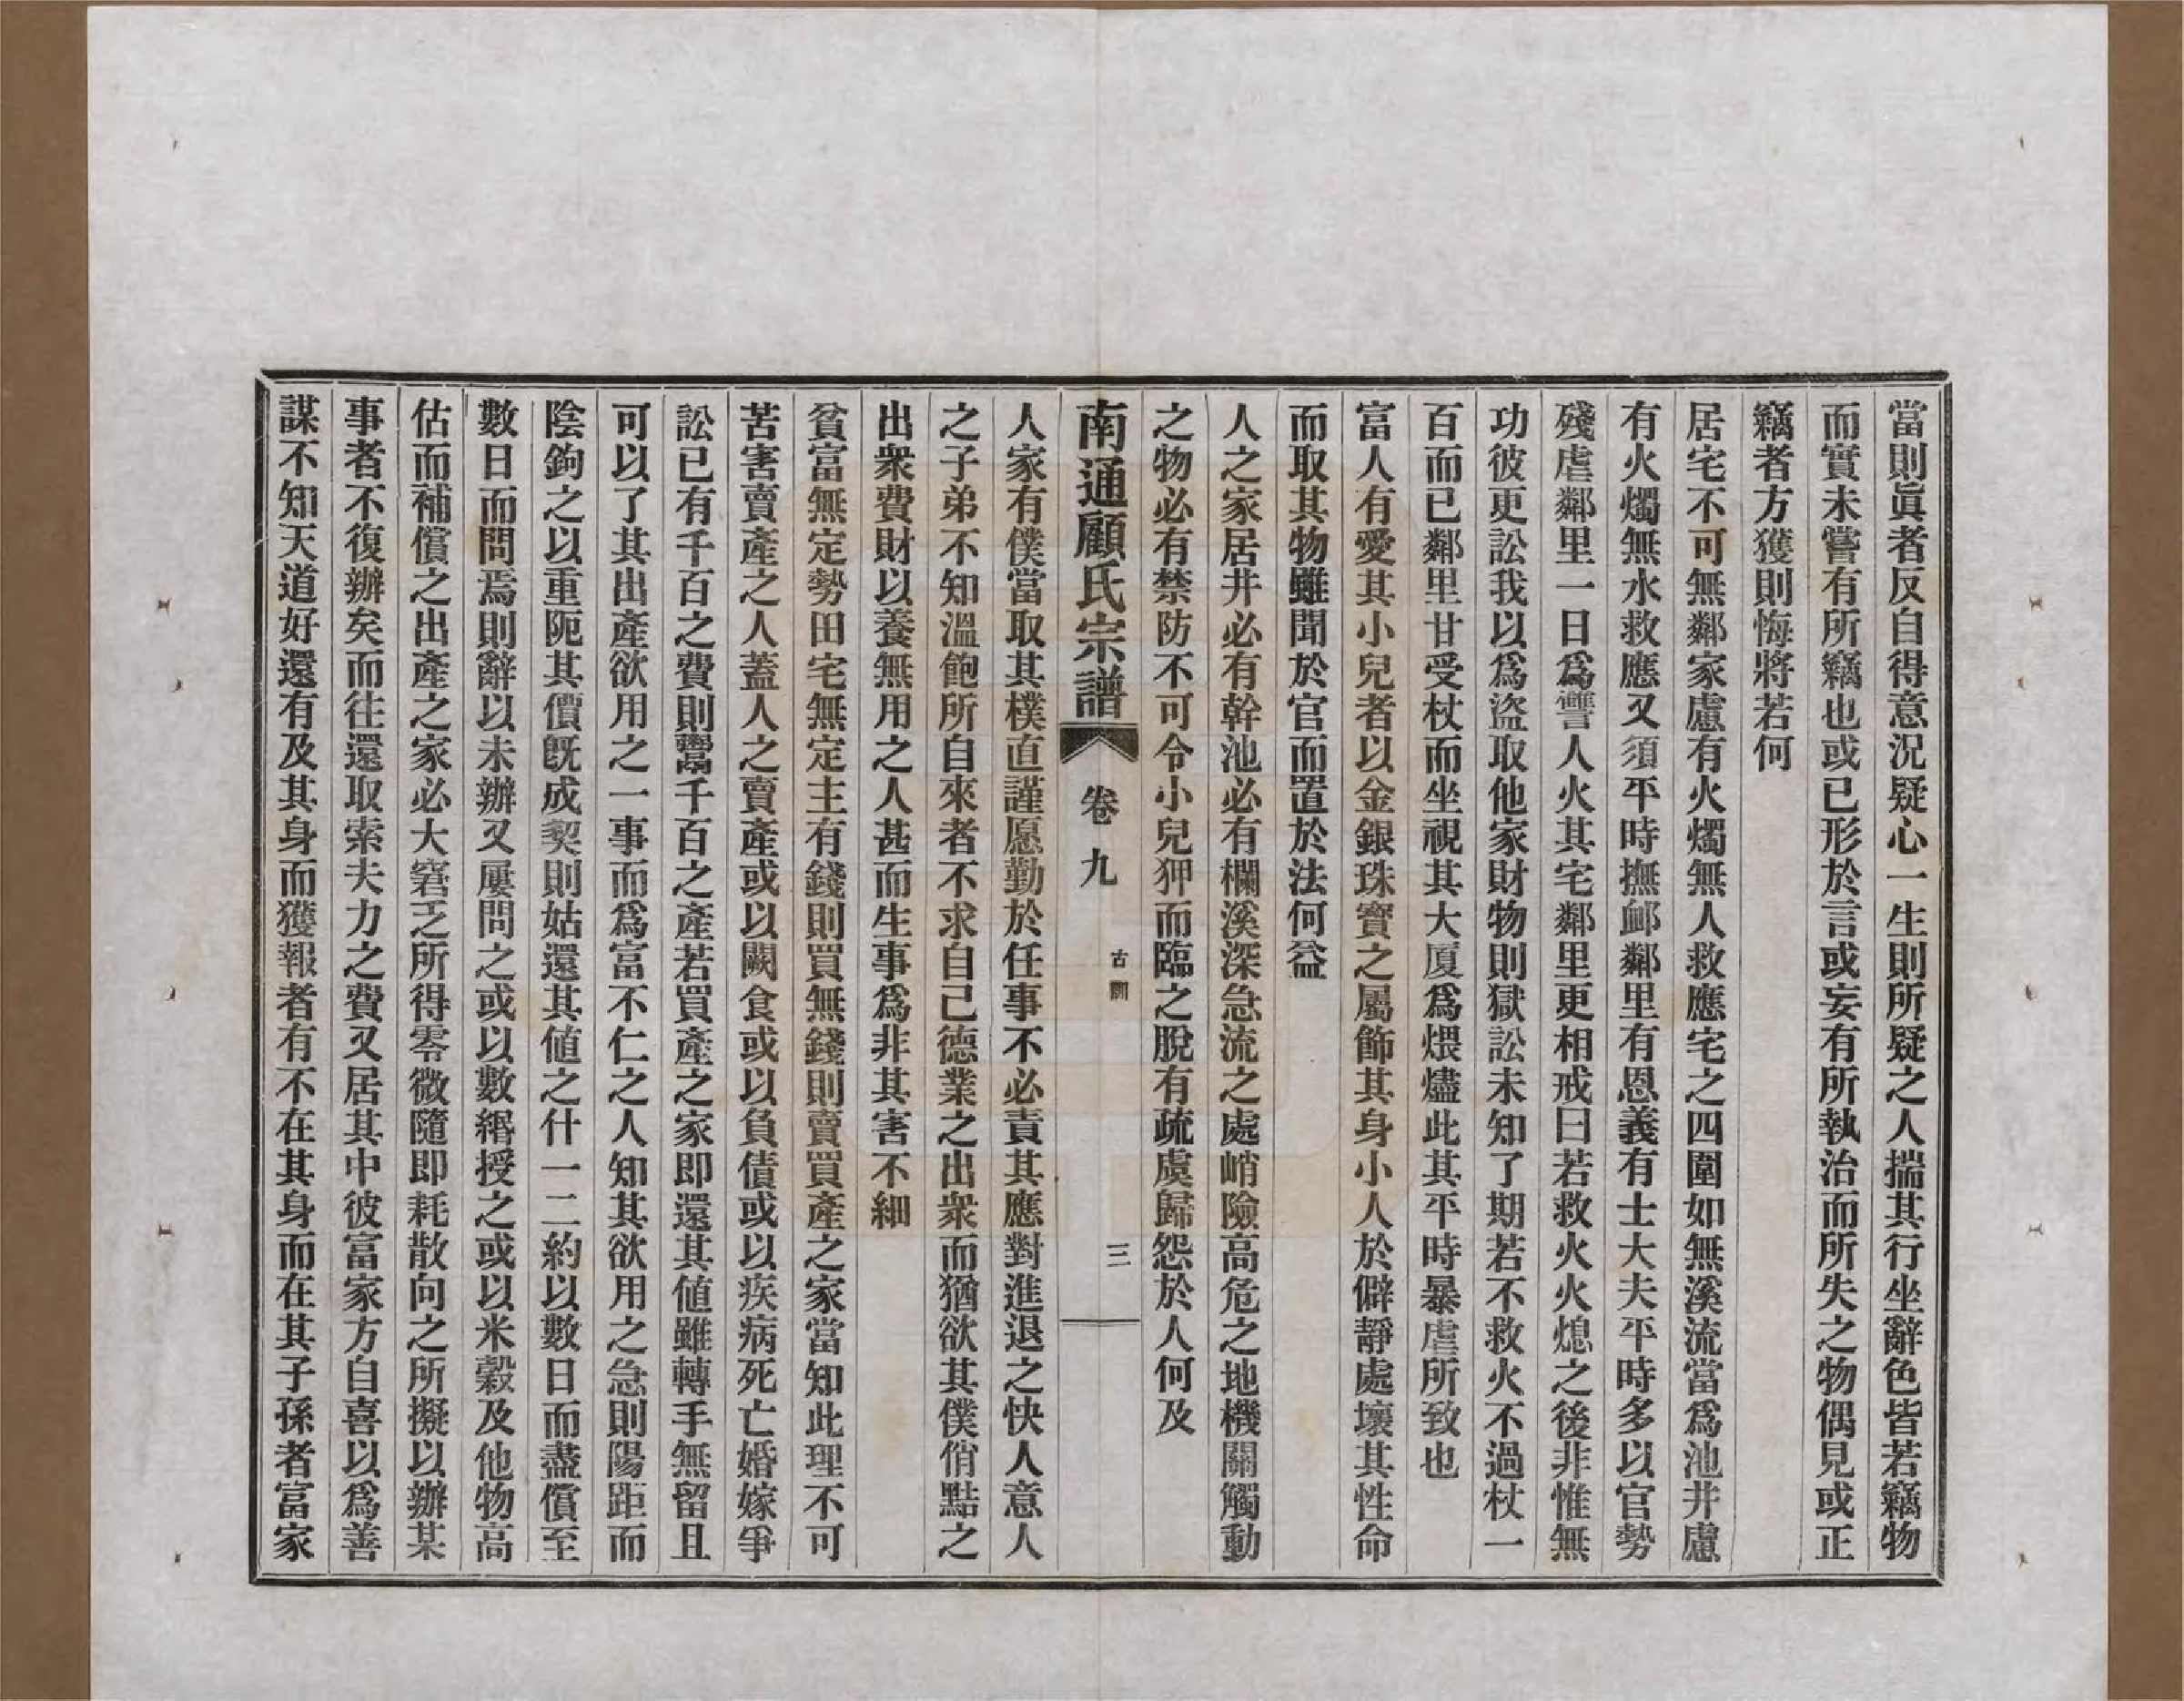 當則眞者反自得意況疑心一生則所疑之人揣其行坐辭色皆若竊物
而實未嘗有所竊也或已形於言或妄有所執治而所失之物偶見或正
竊者方獲則悔將若何
居宅不可無鄰家慮有火燭無人救應宅之四圍如無溪流當爲池井慮
有火燭無水救應又須平時撫卹鄰里有恩義有士大夫平時多以官勢
殘虐鄰里一日爲讐人火其宅鄰里更相戒曰若救火火熄之後非惟無
功彼更訟我以爲盜取他家財物則獄訟未知了期若不救火不過杖一
百而已鄰里甘受杖而坐視其大厦爲煨燼此其平時暴虐所致也
富人有愛其小兒者以金銀珠寳之屬飾其身小人於僻靜處壞其性命
而取其物雖聞於官而置於法何益
人之家居井必有幹池必有欄溪深急流之處峭險高危之地機關觸動
之物必有禁防不可令小兒狎而臨之脫有疏虞歸怨於人何及
南通顧氏宗譜
卷九
古
三
人家有僕當取其樸直謹愿勤於任事不必責其應對進退之快人意人
之子弟不知溫飽所自來者不求自己德業之出衆而猶欲其僕俏黠之
出衆費財以養無用之人甚而生事爲非其害不細
貧富無定勢田宅無定主有錢則買無錢則賣買產之家當知此理不可
苦害賣產之人蓋人之賣產或以闕食或以負債或以疾病死亡婚嫁爭
訟已有千百之費則鬻千百之產若買產之家即還其値雖轉手無留且
可以了其出產欲用之一事而爲富不仁之人知其欲用之急則陽距而
陰鉤之以重阨其價旣成契則姑還其値之什一二約以數日而盡償至
數日而問焉則辭以未辦又屢問之或以數緡授之或以米穀及他物高
估而補償之出產之家必大窘乏所得零微隨即耗散向之所擬以辦某
事者不復辦矣而往還取索夫力之費又居其中彼富家方自喜以爲善
謀不知天道好還有及其身而獲報者有不在其身而在其子孫者富家